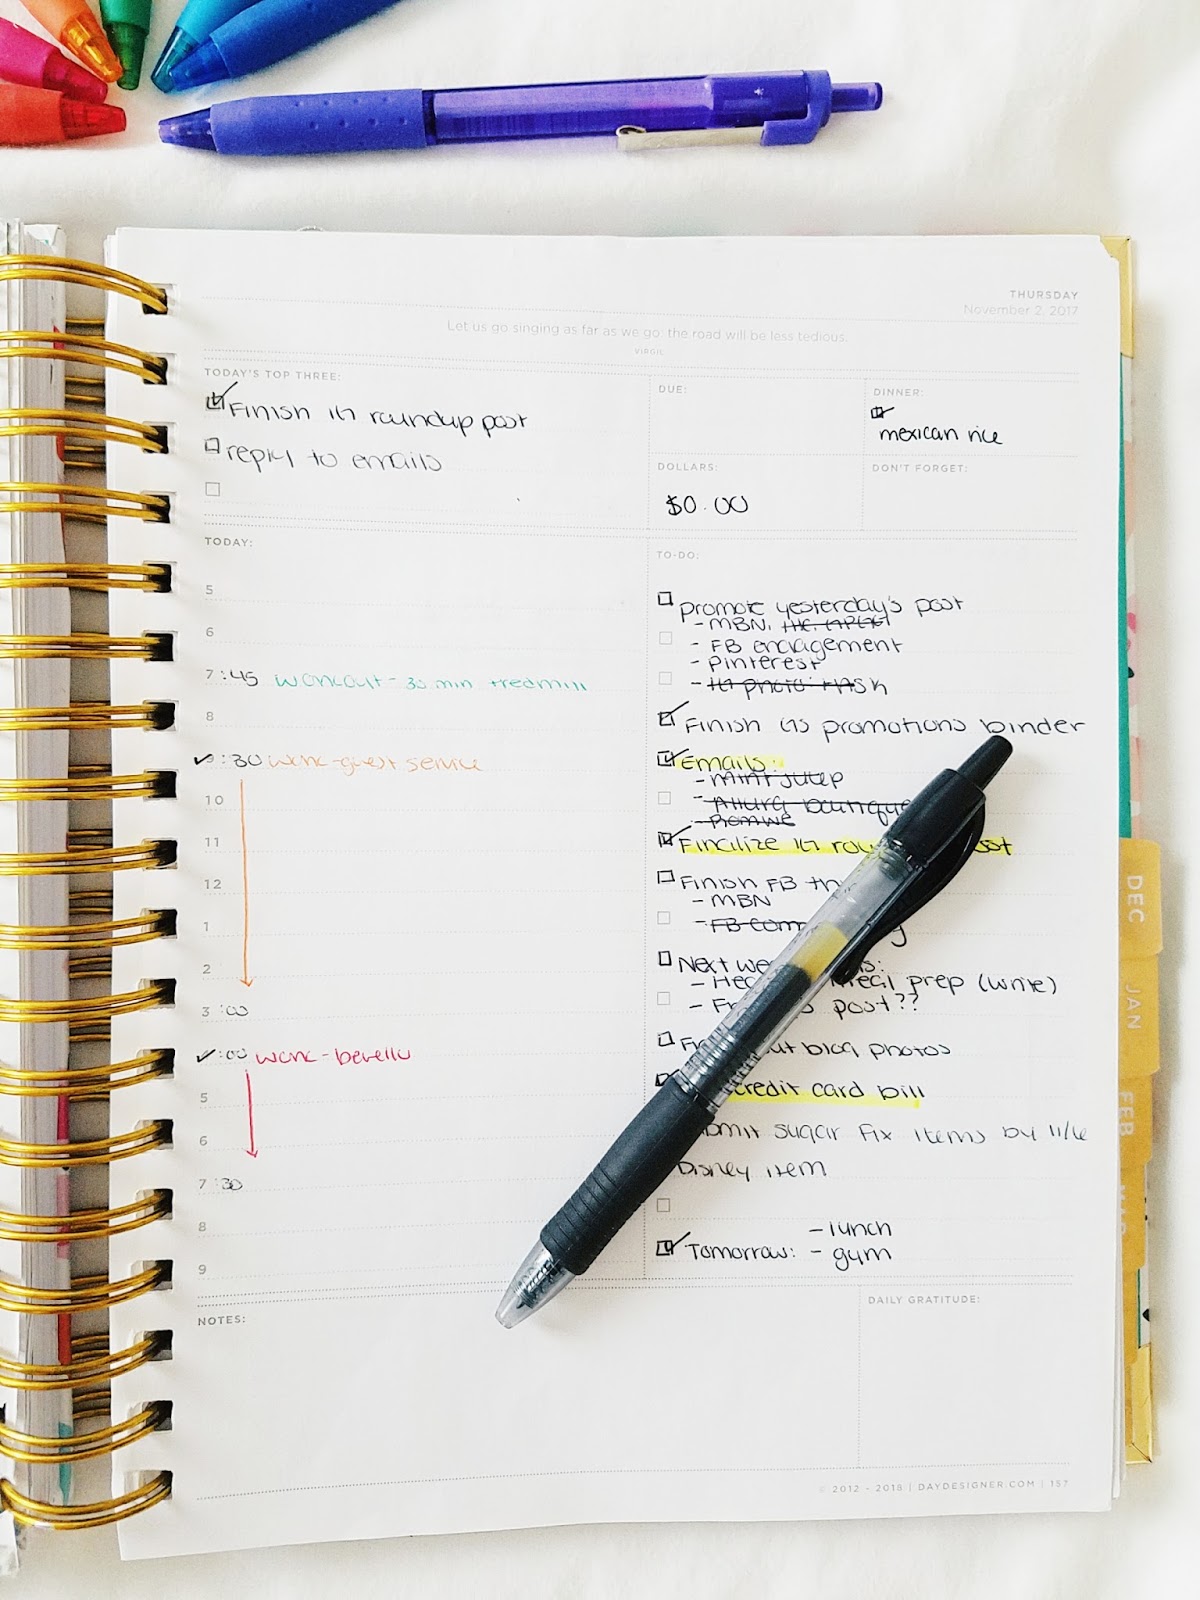 THURSDAY
November 2, 2017
Let us go singing as far as we go: the road will be less tedious.
VIRGIL
TODAY'S TOP THREE:
Finish IG roundup post
reply to emails
DUE:
DINNER:
mexican rice
DOLLARS:
$0.00
DON'T FORGET:
TODAY:
5
6
7:45 workout - 30 min treadmill
8
9:30 work-guest service
10
11
12
1
2
3:00
:00 work-bevello
5
6
7:30
8
9
TO-DO:
promote yesterday's post
- MBN,
- FB engagement
- pinterest
- IG photo
Finish IG promotions binder
Emails:
- mint julep
- Allura boutique
- PromWe
Finalize IG
Finish FB
- MBN
- FB
Next
meal prep (write)
- post??
blog photos
credit card bill
sugar fix items by 11/6
Disney item
Tomorrow: - lunch
- gym
NOTES:
DAILY GRATITUDE:
© 2012 - 2018 | DAYDESIGNER.COM | 157
DEC
JAN
FEB
MAR